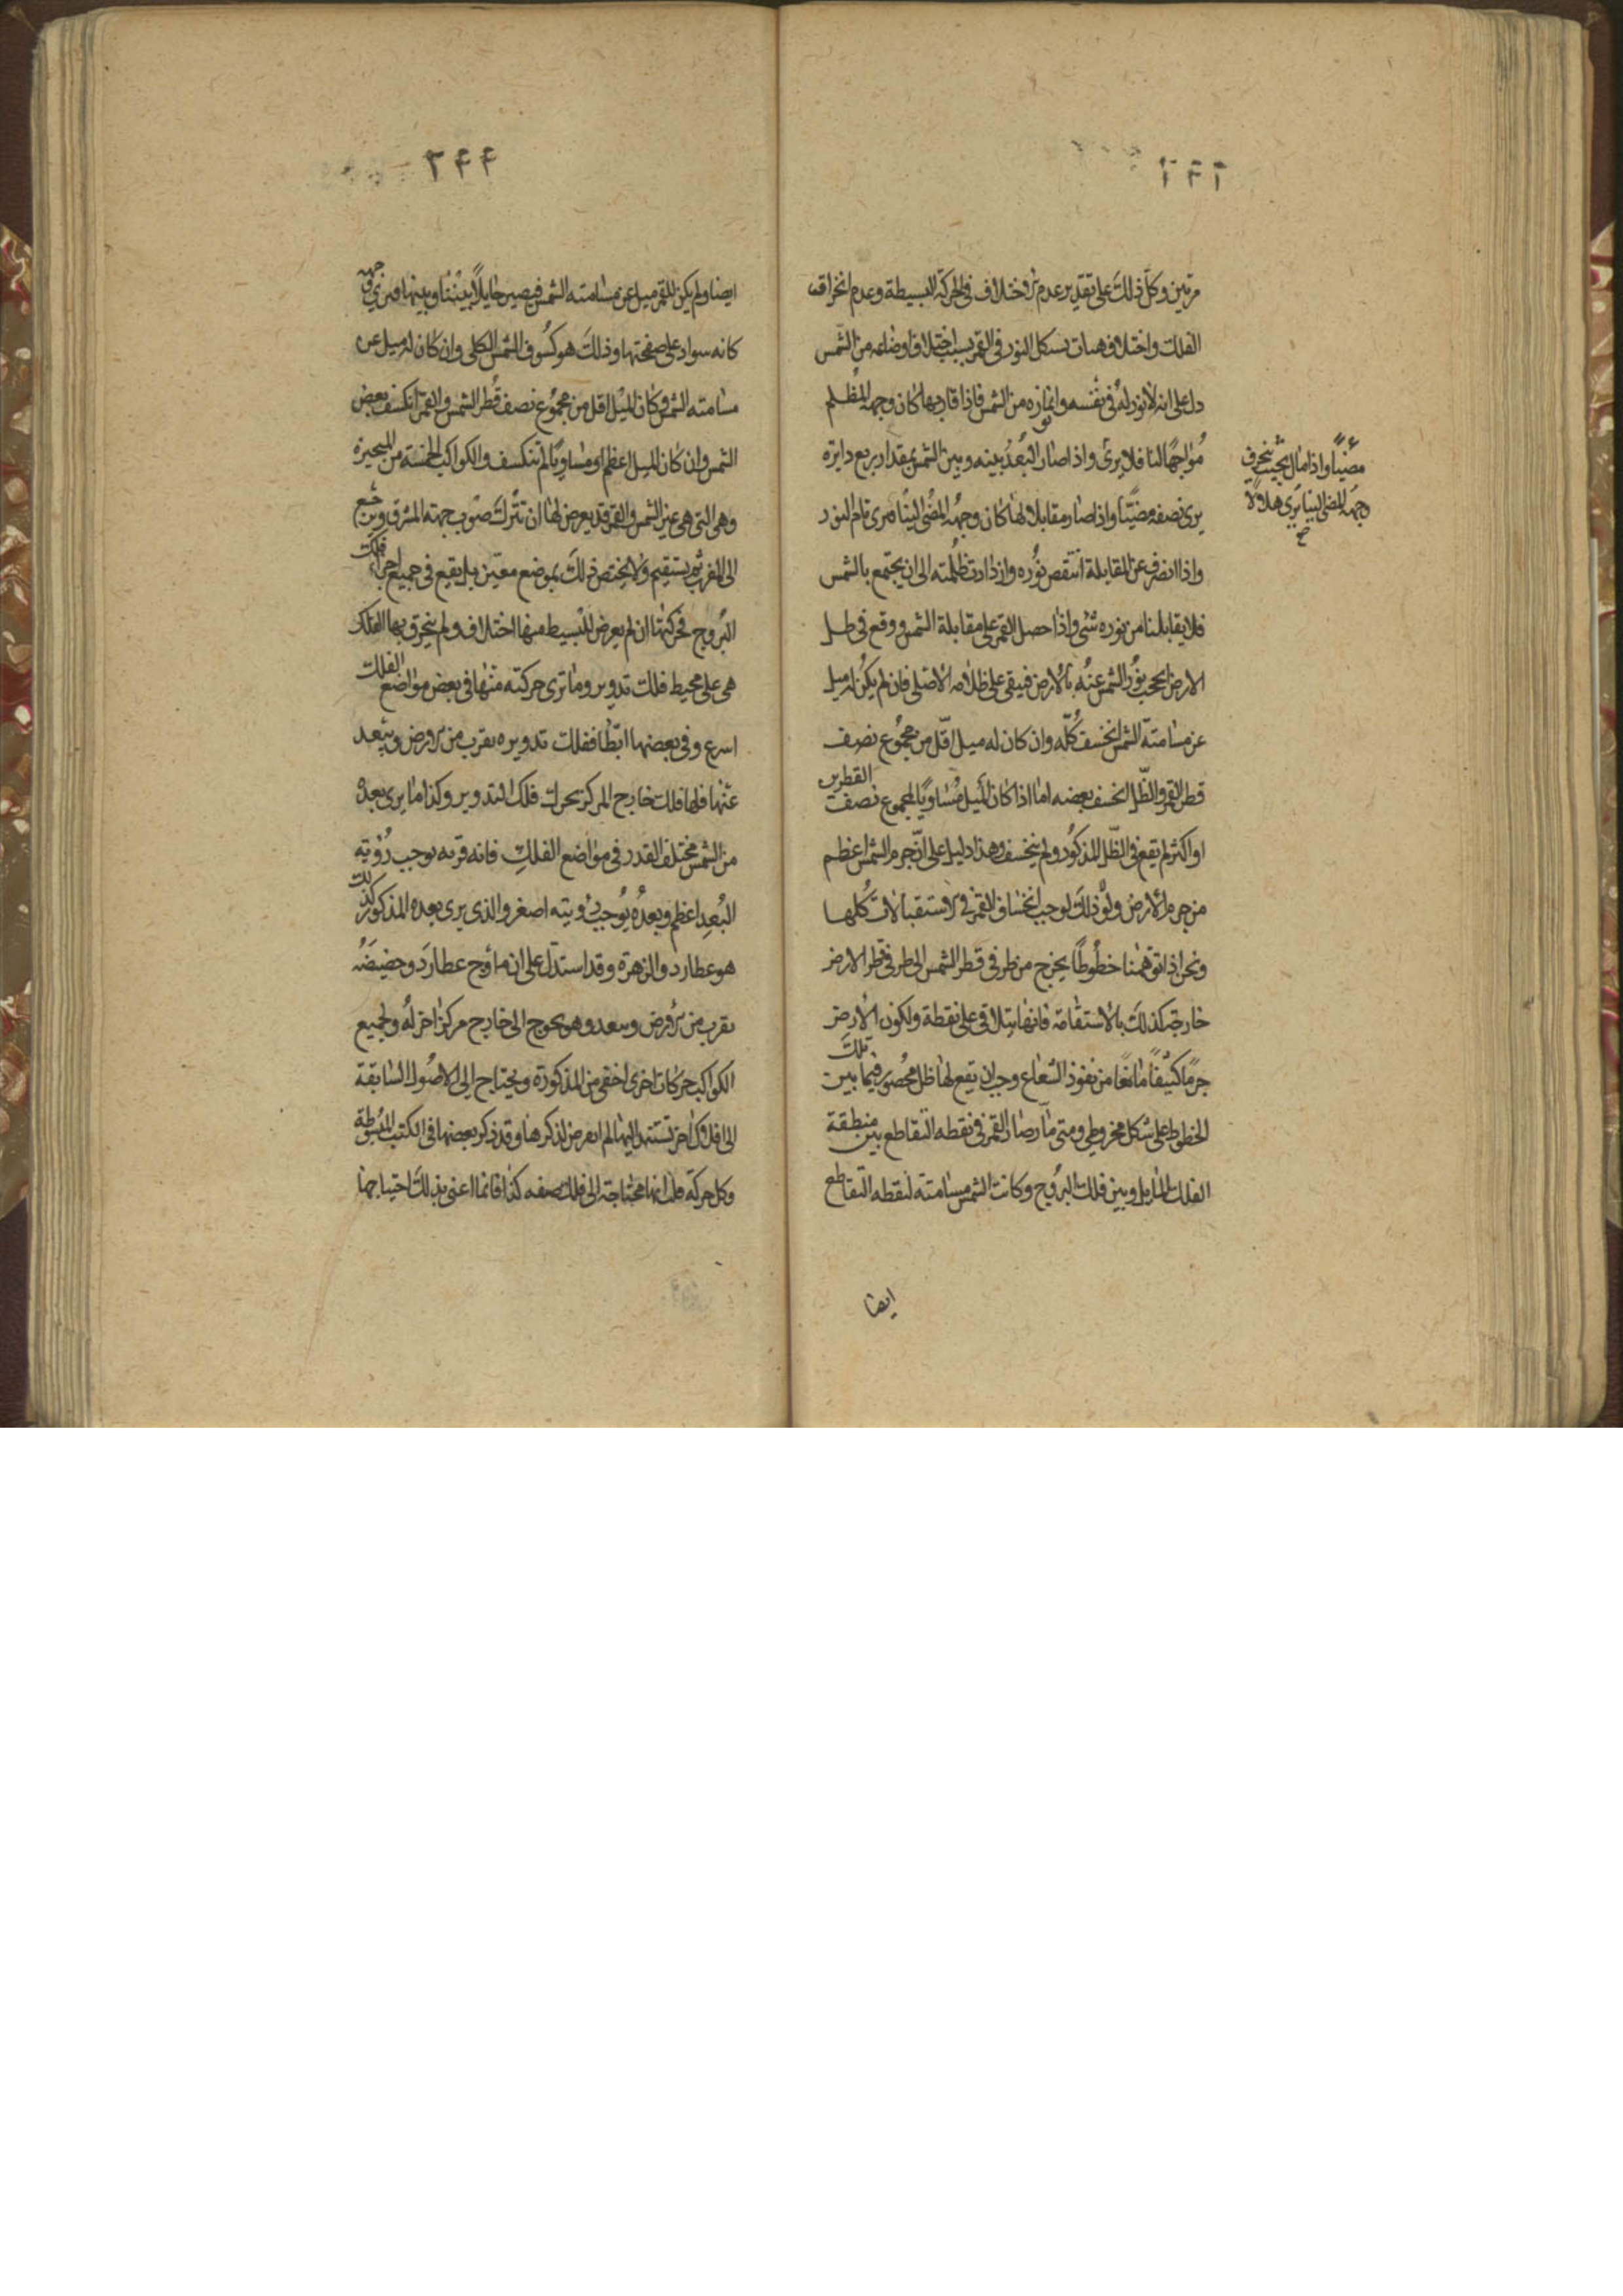 مرتين وكل ذلك على تقدير عدم الاختلاف في الحركة البسيطة وعدم انخراق
الفلك واختلاف هيات تشكل النور في القمر بسبب اختلاف اوضاعه من الشمس
دل على انه لا نور له في نفسه وانما نوره من الشمس فاذا قاربها كان وجهه المظلم
مواجها لنا فلا يرى واذا صار البعد بينه وبين الشمس بمقدار ربع دايرة
يرى نصفه مضيئا واذا صار مقابلا لها كان وجهه المضي الينا فيرى تام النور
واذا انصرف عن المقابلة انتقص نوره وازدادت ظلمته الى ان يجتمع بالشمس
فلا يقابلنا من نوره شى واذا حصل القمر على مقابلة الشمس ووقع في ظل
الارض انحجب نور الشمس عنه بالارض فيبقى على ظلامه الاصلى فان لم يكن له ميل
عن مسامتة الشمس انخسف كله وان كان له ميل اقل من مجموع نصف
قطر القمر والظل انخسف بعضه اما اذا كان الميل مساويا لمجموع نصف القطرين
او اكثر لم يقع في الظل المذكور ولم ينخسف وهذا دليل على ان جرم الشمس اعظم
من جرم الارض ولولا ذلك لوجب انخساف القمر في الاستقبالات كلها
ونحن اذا توهمنا خطوطا يخرج من طرفي قطر الشمس الى طرفي قطر الارض
خارجة كذلك بالاستقامة فانها يتلاقى على نقطة ولكون الارض
جرما كثيفا مانعا من نفوذ الشعاع وجب ان يقع لها ظل محصور فيما بين تلك
الخطوط على شكل مخروطى ومتى ما صار القمر في نقطه التقاطع بين منطقة
الفلك المايل وبين فلك البروج وكانت الشمس مسامتة لنقطه التقاطع
ايضا
مضيئا واذا مال بحيث ينحرف
وجهه المضى الينا يرى هلالا
صح
ايضا ولم يكن للقمر ميل عن مسامته الشمس فيصير حايلا بيننا وبينها فيرى جرمه
كانه سواد على صفحتها وذلك هو كسوف الشمس الكلى وان كان له ميل عن
مسامته الشمس وكان الميل اقل من مجموع نصف قطر الشمس والقمر انكسف بعض
الشمس وان كان الميل اعظم او مساويا لم تنكسف والكواكب الخمسة من المتحيرة
وهى التى هى غير الشمس والقمر قد يعرض لها ان تترك صوب جهته المشرق وترجع
الى المغرب ثم يستقيم ولا يختص ذلك بموضع معين بل يقع في جميع اجزاء فلك
البروج فحركتها ان لم يعرض للبسيط منها اختلاف ولم ينخرق بها الفلك
هى على محيط فلك تدوير وما ترى حركته منها في بعض مواضع الفلك
اسرع وفي بعضها ابطا ففلك تدويره يقرب من الارض ويبعد
عنها فلها فلك خارج المركز يحرك فلك التدوير وكذا ما يرى بعده
من الشمس مختلف القدر في مواضع الفلك فانه قربه يوجب رؤية
البعد اعظم وبعده يوجب رؤيته اصغر والذى يرى بعده المذكور كذلك
هو عطارد والزهرة وقد استدل على ان ما اوج عطارد وحضيضه
يقرب من الارض ويبعد وهو يحوج الى خارج مركز اخر له ولجميع
الكواكب حركات اخرى اخفى من المذكورة ويحتاج الى الاصول السابقة
الى افلاك اخر تستند اليها لم اتعرض لذكرها وقد ذكر بعضها في الكتب المبسوطة
وكل حركة قلت انها محتاجة الى فلك صفه كذا فانما اعنى بذلك احتياجها